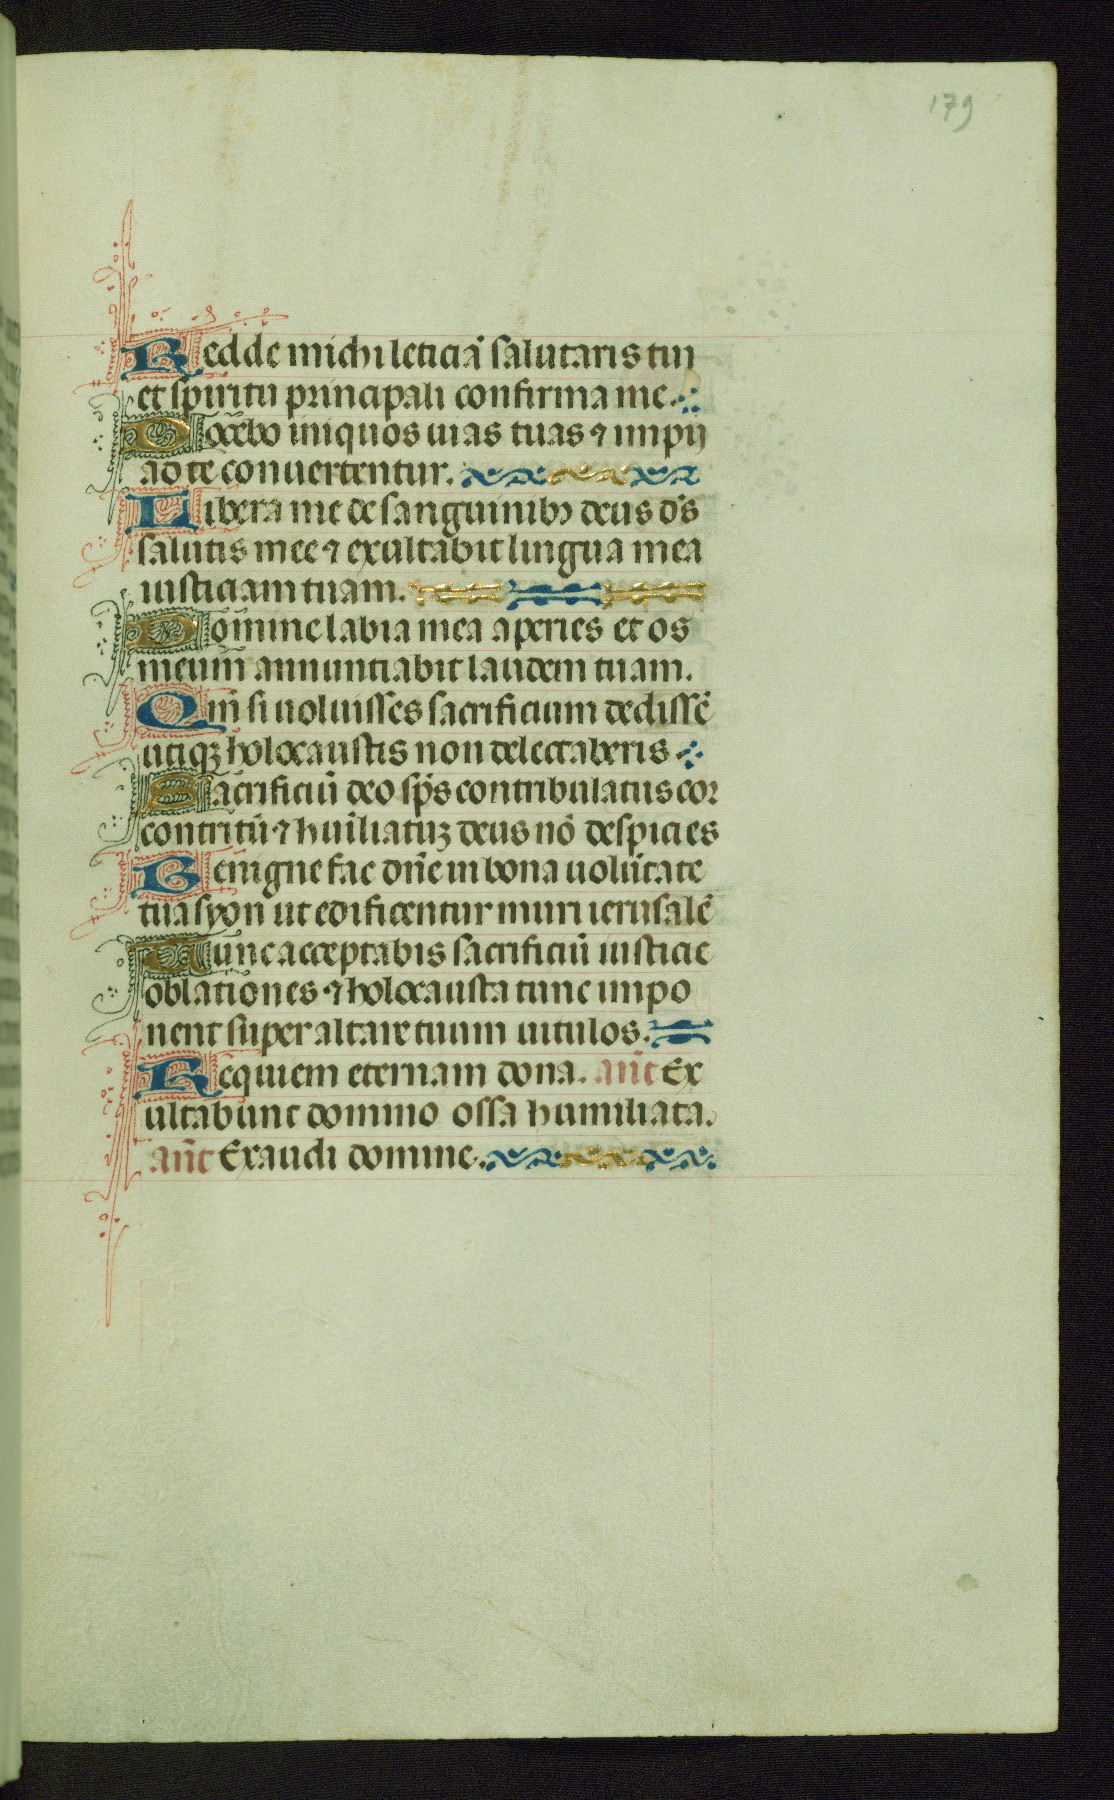 179
Redde michi leticiā salutaris tui
et spiritu principali confirma me.
Docebo iniquos uias tuas ⁊ impij
ad te conuertentur.
Libera me de sanguinibꝫ deus ds̄
salutis mee ⁊ exultabit lingua mea
iusticiam tuam.
Domine labia mea aperies et os
meum annuntiabit laudem tuam.
Qm̄ si uoluisses sacrificium dedissē
utiqꝫ holocaustis non delectaberis
Sacrificiū deo sp̄s contribulatus cor
contritū ⁊ huīliatuꝫ deus nō despicies
Benigne fac dn̄e in bona uolūtate
tua syon ut edificentur muri ierusalē
Tunc acceptabis sacrificiū iusticie
oblationes ⁊ holocausta tunc impo
nent super altare tuum uitulos.
Requiem eternam dona. an̄t Ex
ultabunt domino ossa humiliata.
an̄t Exaudi domine.